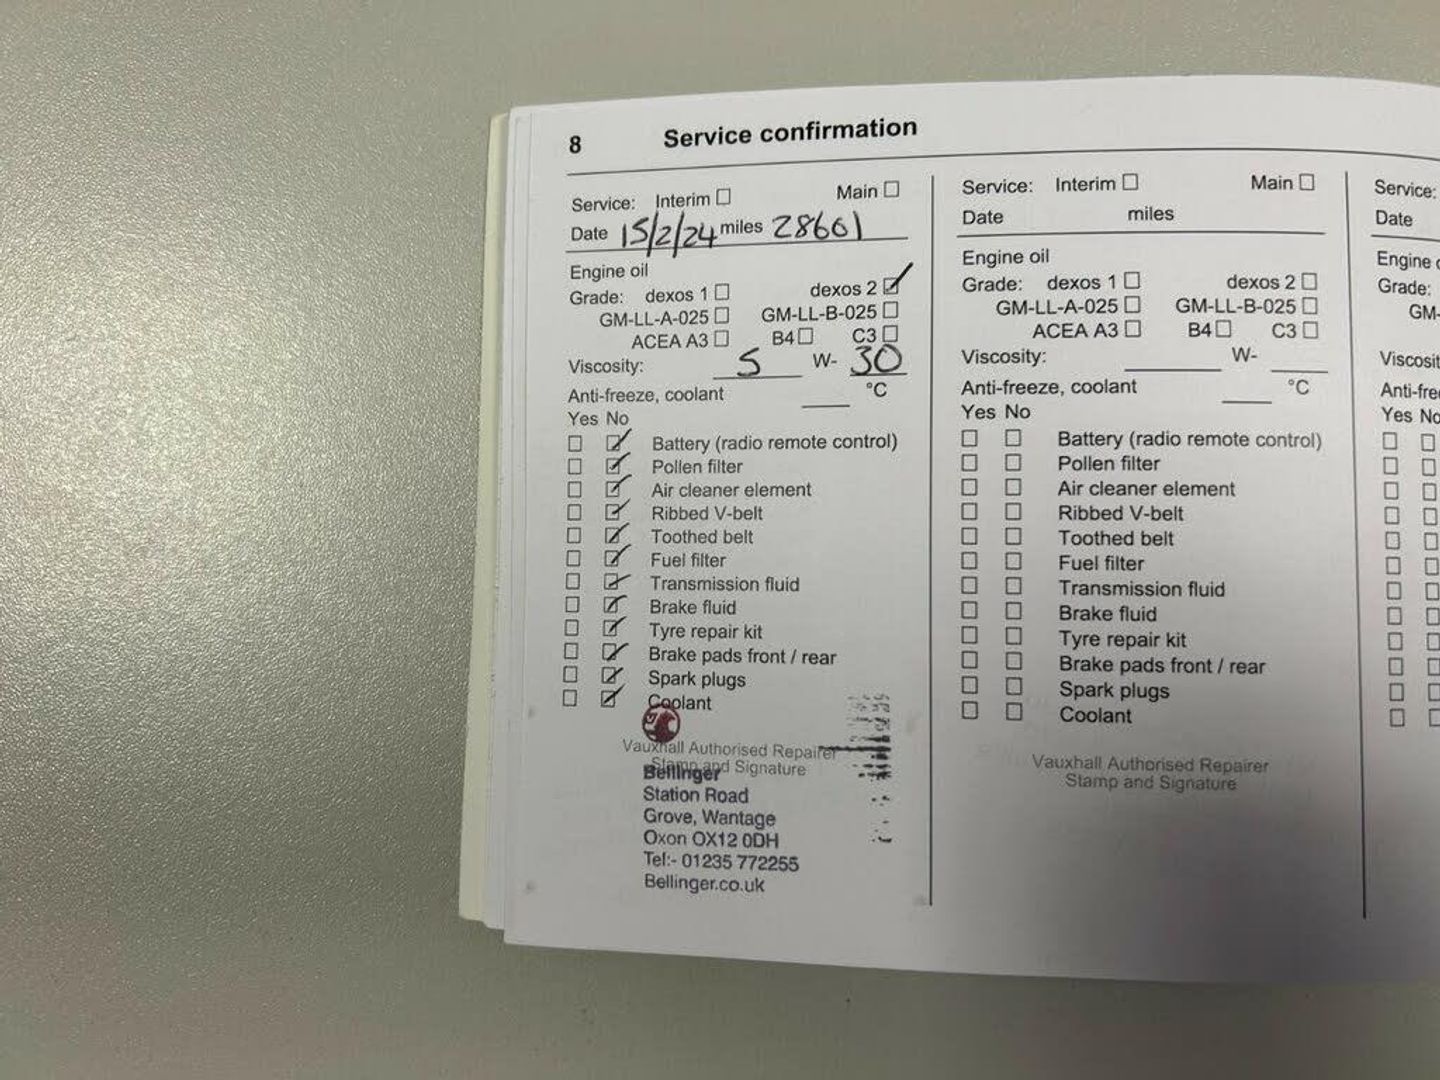 8 Service confirmation
Service: Interim Main
Date 15/2/24 miles 28601
Engine oil
Grade: dexos 1 dexos 2
GM-LL-A-025 GM-LL-B-025
ACEA A3 B4 C3
Viscosity: 5 W- 30
Anti-freeze, coolant °C
Yes No
Battery (radio remote control)
Pollen filter
Air cleaner element
Ribbed V-belt
Toothed belt
Fuel filter
Transmission fluid
Brake fluid
Tyre repair kit
Brake pads front / rear
Spark plugs
Coolant
Vauxhall Authorised Repairer
Stamp and Signature
Bellinger
Station Road
Grove, Wantage
Oxon OX12 0DH
Tel:- 01235 772255
Bellinger.co.uk
Service: Interim Main
Date miles
Engine oil
Grade: dexos 1 dexos 2
GM-LL-A-025 GM-LL-B-025
ACEA A3 B4 C3
Viscosity: W-
Anti-freeze, coolant °C
Yes No
Battery (radio remote control)
Pollen filter
Air cleaner element
Ribbed V-belt
Toothed belt
Fuel filter
Transmission fluid
Brake fluid
Tyre repair kit
Brake pads front / rear
Spark plugs
Coolant
Vauxhall Authorised Repairer
Stamp and Signature
Service:
Date
Engine
Grade:
GM-
Viscosit
Anti-free
Yes No